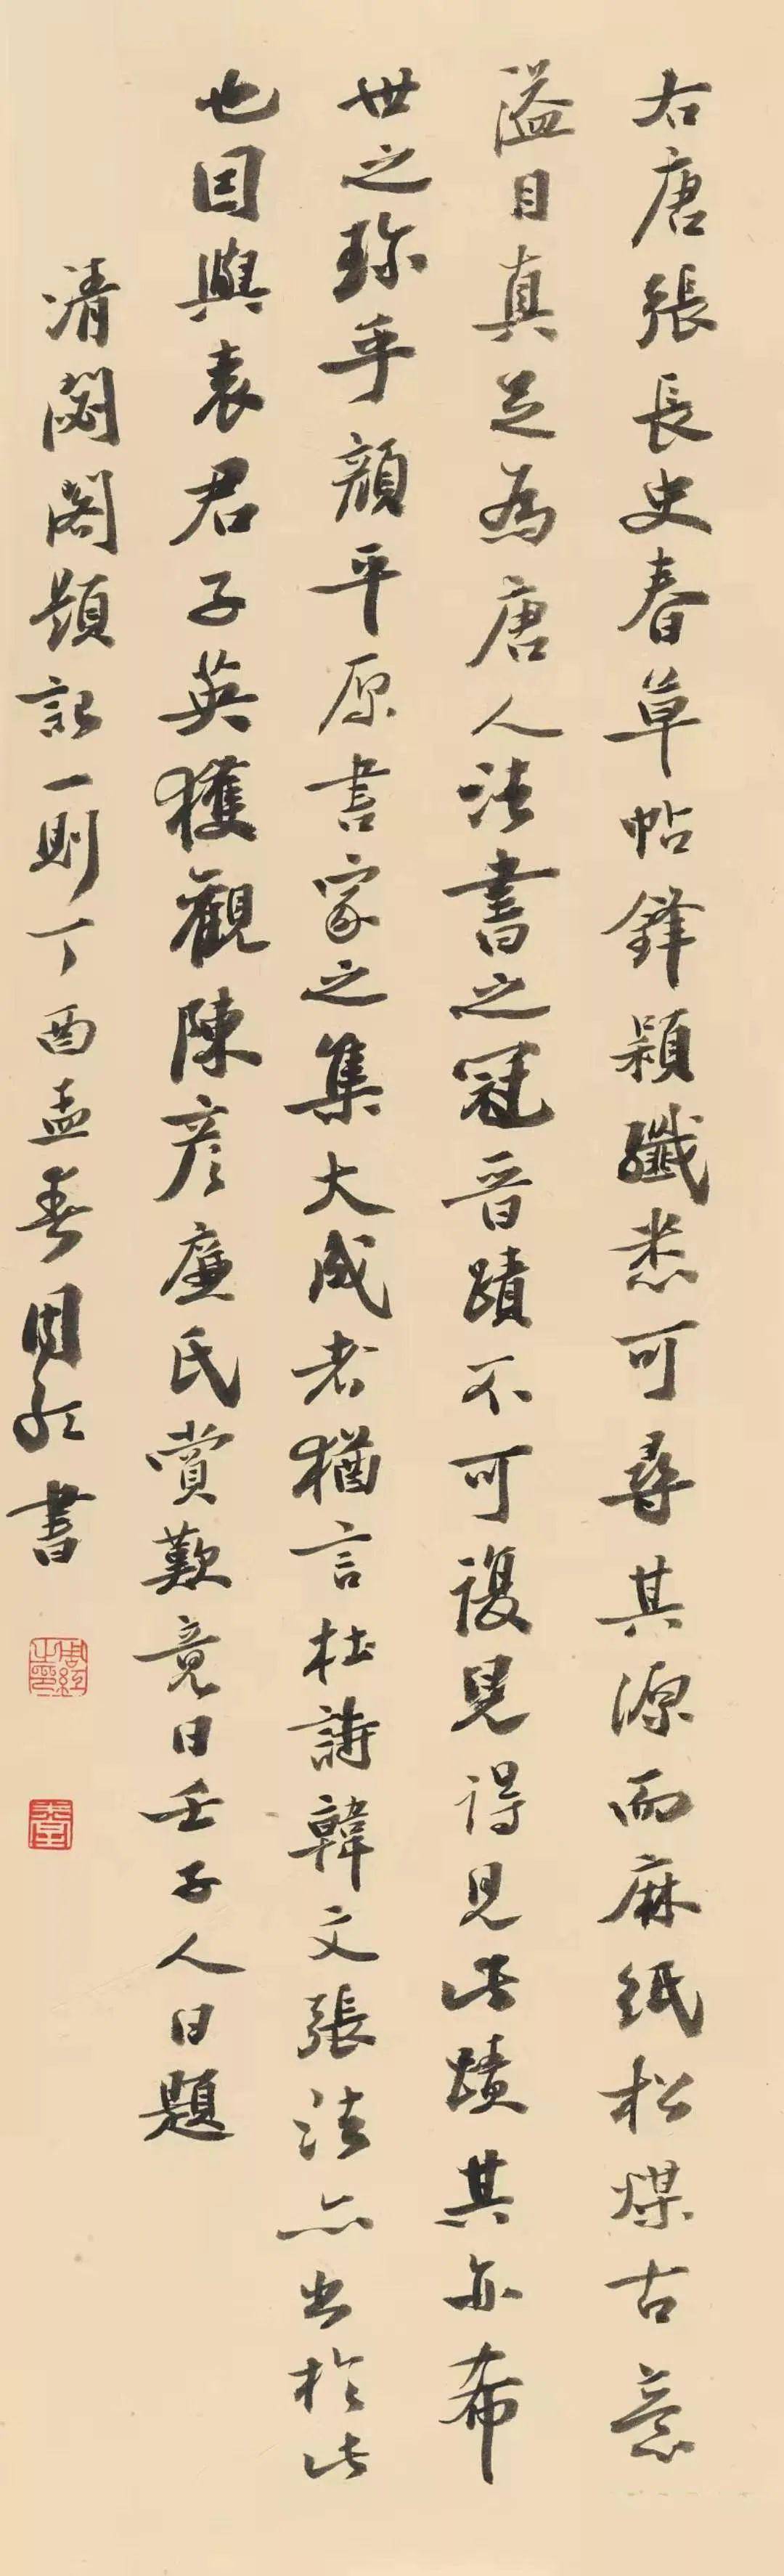 右唐張長史春草帖鋒穎纖悉可尋其源而麻紙松煤古意
溢目真足為唐人法書之冠晉蹟不可復見得見此蹟其亦希
世之珎乎顔平原書家之集大成者猶言杜詩韓文張法亦出於此
也因與袁君子英獲觀陳彦廉氏賞歎竟日壬子人日題
清閟閣題記一則丁酉孟春周紅書